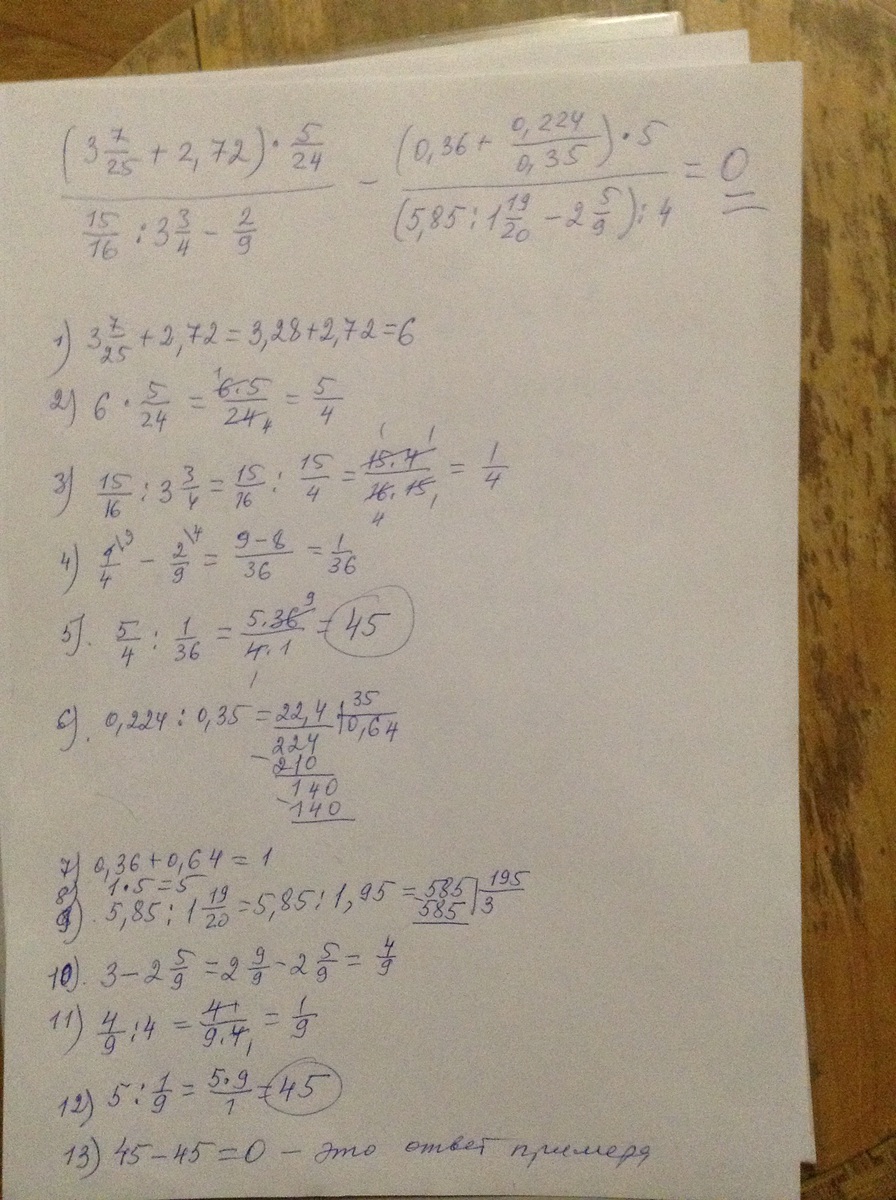 (3 7/25 + 2,72) · 5/24 / 15/16 : 3 3/4 - 2/9 - (0,36 + 0,224/0,35) · 5 / (5,85 : 1 19/20 - 2 5/9) : 4 = 0
1) 3 7/25 + 2,72 = 3,28 + 2,72 = 6
2) 6 · 5/24 = 6·5/24 = 5/4
3) 15/16 : 3 3/4 = 15/16 : 15/4 = 15·4/16·15 = 1/4
4) 1/4 - 2/9 = 9-8/36 = 1/36
5). 5/4 : 1/36 = 5·36/4·1 = 45
6). 0,224 : 0,35 = 22,4 | 35
224 0,64
- 210
140
- 140
7) 0,36 + 0,64 = 1
8) 1 · 5 = 5
9). 5,85 : 1 19/20 = 5,85 : 1,95 = 585 | 195
- 585 3
10). 3 - 2 5/9 = 2 9/9 - 2 5/9 = 4/9
11) 4/9 : 4 = 4·1/9·4 = 1/9
12) 5 : 1/9 = 5·9/1 = 45
13) 45 - 45 = 0 - это ответ примера